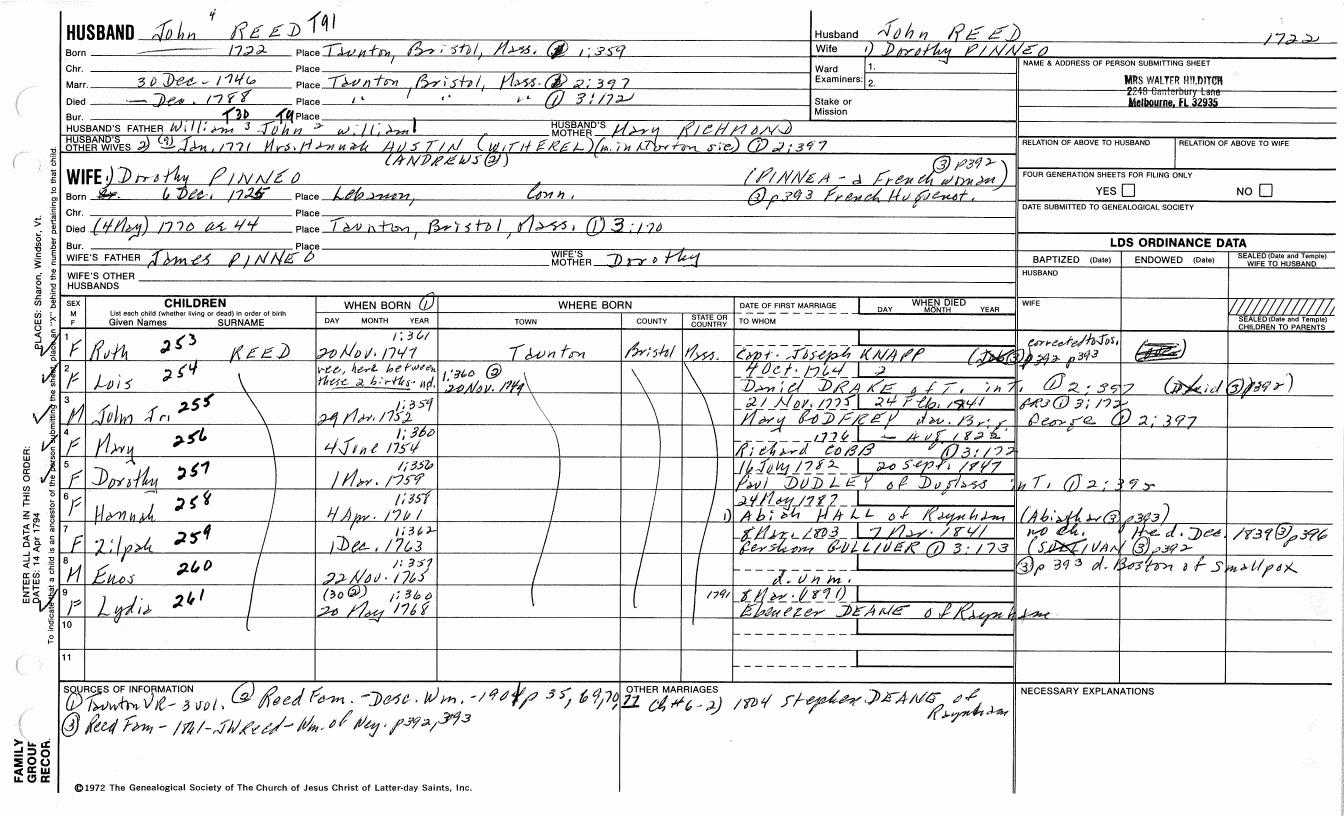 HUSBAND John 4 REED T91
Born 1722 Place Taunton, Bristol, Mass. 1:359
Chr. Place
Marr. 30 Dec - 1746 Place Taunton, Bristol, Mass. 2:397
Died — Dec. 1788 Place " " " ① 3:172
Bur. T30 T9 Place
HUSBAND'S FATHER William 3 John 2 William 1 HUSBAND'S MOTHER Mary RICHMOND
HUSBAND'S OTHER WIVES 2) Jan. 1771 Mrs. Hannah AUSTIN (WITHEREL) (m. in Norton sic) ① 2:397
(ANDREWS ②)
WIFE 1) Dorothy PINNEO (PINNEA - a French woman) ③ p392
Born 6 Dec. 1725 Place Lebanon, Conn. ③ p393 French Hugenot.
Chr. Place
Died (4 May) 1770 ae 44 Place Taunton, Bristol, Mass. ① 3:170
Bur. Place
WIFE'S FATHER James PINNEO WIFE'S MOTHER Dorothy
WIFE'S OTHER HUSBANDS
Husband John REED 1722
Wife 1) Dorothy PINNEO
Ward Examiners: 1.
2.
Stake or Mission
NAME & ADDRESS OF PERSON SUBMITTING SHEET
MRS WALTER HILDITCH
2248 Canterbury Lane
Melbourne, FL 32935
RELATION OF ABOVE TO HUSBAND RELATION OF ABOVE TO WIFE
FOUR GENERATION SHEETS FOR FILING ONLY
YES NO
DATE SUBMITTED TO GENEALOGICAL SOCIETY
LDS ORDINANCE DATA
BAPTIZED (Date) ENDOWED (Date) SEALED (Date and Temple) WIFE TO HUSBAND
HUSBAND
WIFE
SEALED (Date and Temple) CHILDREN TO PARENTS
SEX M F CHILDREN WHEN BORN ① WHERE BORN DATE OF FIRST MARRIAGE WHEN DIED
List each child (whether living or dead) in order of birth
Given Names SURNAME DAY MONTH YEAR TOWN COUNTY STATE OR COUNTRY TO WHOM DAY MONTH YEAR
1 F Ruth 253 REED 1:361 20 Nov. 1747 Taunton Bristol Mass. Capt. Joseph KNAPP corrected to Jos. ③ p392 p393
2 F Lois 254 rec. here between these 2 births - nd. 1:360 ② 20 Nov. 1749 4 Oct. 1764 2 Daniel DRAKE of T. in T. ① 2:397 (David ③ p392)
3 M John Jr. 255 1:359 29 Mar. 1752 21 Nov. 1775 24 Feb. 1841 GR3 ① 3:172 Mary GODFREY dau. Brig. George ① 2:397
4 F Mary 256 1:360 4 June 1754 1776 — Aug 1822 Richard COBB ① 3:172
5 F Dorothy 257 1:356 1 Mar. 1759 16 July 1782 20 Sept. 1847 Paul DUDLEY of Duglass in T. ① 2:395
6 F Hannah 258 1:358 4 Apr. 1761 24 May 1787 1) Abiah HALL of Raynham (Abiathar ③ p393)
7 F Zilpah 259 1:362 1 Dec. 1763 8 Mar. 1803 7 Mar. 1841 no ch. He d. Dec. 1839 ③ p396 Gershom GULLIVER ① 3:173 (SULLIVAN ③ p392
8 M Enos 260 1:357 22 Nov. 1765 d. unm. ③ p 393 d. Boston of smallpox
9 F Lydia 261 (30 ②) 1:360 20 May 1768 1791 8 Mar. (1891) Ebenezer DEANE of Raynham
10
11
SOURCES OF INFORMATION
① Taunton VR - 3 vol. ② Reed Fam. - Desc. Wm. - 1901 p 35, 69, 70, 71
③ Reed Fam - 1861 - JWReed - Wm. of Wey. p392, 393
OTHER MARRIAGES
Ch #6 - 2) 1804 Stephen DEANE of Raynham
NECESSARY EXPLANATIONS
©1972 The Genealogical Society of The Church of Jesus Christ of Latter-day Saints, Inc.
FAMILY GROUP RECOR
ENTER ALL DATA IN THIS ORDER:
DATES: 14 Apr 1794
PLACES: Sharon, Windsor, Vt.
To indicate that a child is an ancestor of the person submitting the sheet, place an "X" behind the number pertaining to that child.